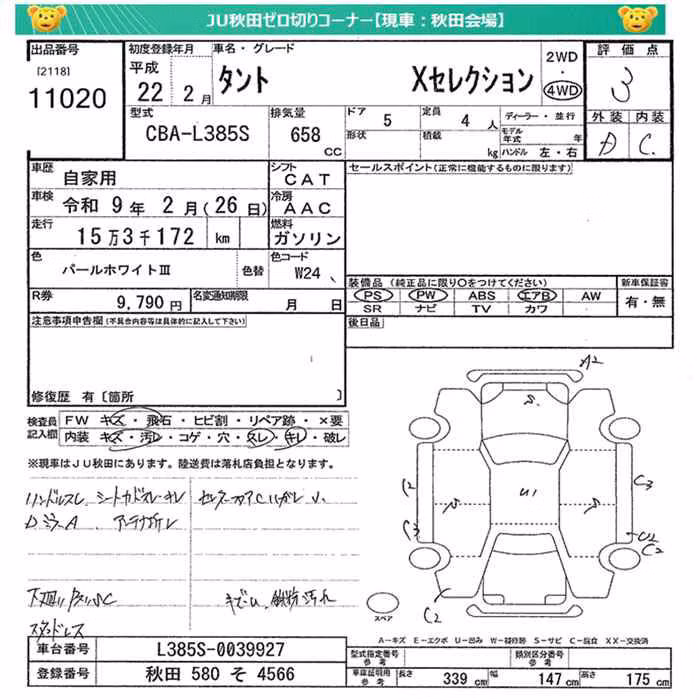 JU秋田ゼロ切りコーナー【現車：秋田会場】
出品番号 初度登録年月 車名・グレード 2WD・4WD 評価点
[2118] 11020 平成 22 2月 タント Xセレクション 3
型式 CBA-L385S 排気量 658 CC ドア 5 定員 4人 ディーラー・並行 外装 内装
形状 積載 kg モデル年式 年 ハンドル 左・右 A C
車歴 自家用 シフト CAT セールスポイント(正常に機能するものに限ります)
車検 令和 9年 2月(26日) 冷房 AAC
走行 15万3千172 km 燃料 ガソリン
色 パールホワイトⅢ 色替 色コード W24
装備品 (純正品に限り○をつけてください) 新車保証書
R券 9,790円 名変通知期限 月 日 PS PW ABS エアB AW 有・無
SR ナビ TV カワ
注意事項申告欄(不具合内容等は具体的に記入して下さい) 後日品
修復歴 有〔箇所 〕
検査員記入欄 FW キズ・飛石・ヒビ割・リペア跡・×要
内装 キズ・汚レ・コゲ・穴・スレ・キレ・破レ
※現車はJU秋田にあります。陸送費は落札店負担となります。
A2
S
C2 U1 C3
C3 U2
C2
C2
ハンドルスレ シートカドスレ・キレ
Dミラー A アンテナ折レ
下廻り
キズ・U 鉄粉汚れ
スタッドレス
スペア
A-キズ E-エクボ U-凹み W-補修跡 S-サビ C-腐食 XX-交換済
車台番号 L385S-0039927 型式指定番号 参考 類別区分番号 参考
登録番号 秋田 580 そ 4566 車庫証明用 参考 長さ 339 cm 幅 147 cm 高さ 175 cm